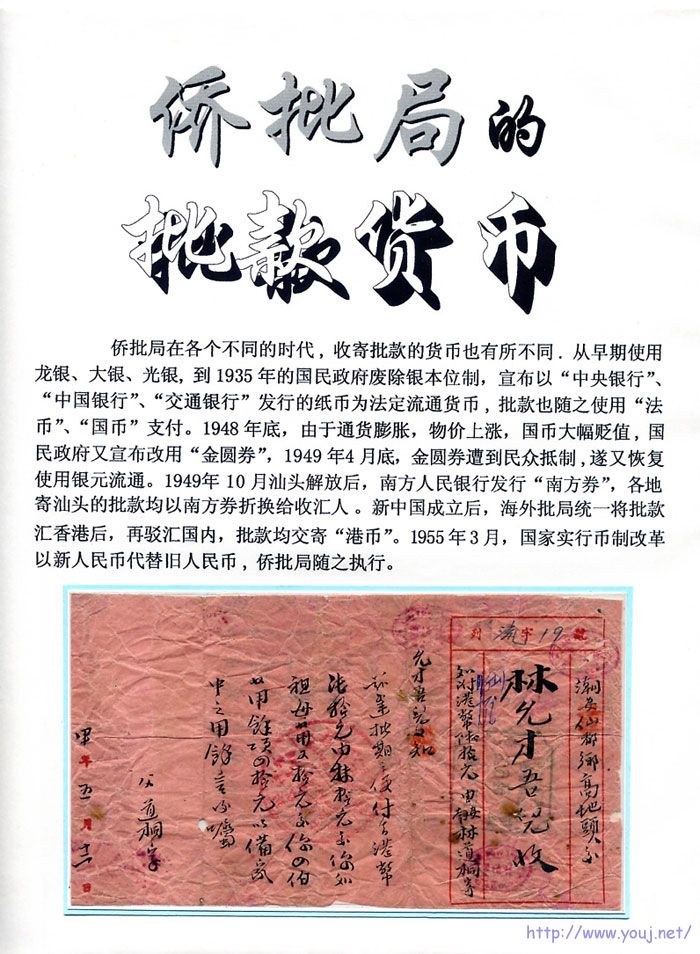 侨批局的
批款货币
侨批局在各个不同的时代，收寄批款的货币也有所不同．从早期使用
龙银、大银、光银，到 1935 年的国民政府废除银本位制，宣布以“中央银行”、
“中国银行”、“交通银行”发行的纸币为法定流通货币，批款也随之使用“法
币”、“国币”支付。1948 年底，由于通货膨胀，物价上涨，国币大幅贬值，国
民政府又宣布改用“金圆券”，1949 年4 月底，金圆券遭到民众抵制，遂又恢复
使用银元流通。1949年 10 月汕头解放后，南方人民银行发行“南方券”，各地
寄汕头的批款均以南方券折换给收汇人 。新中国成立后，海外批局统一将批款
汇香港后，再驳汇国内，批款均交寄“港币”。1955 年 3 月，国家实行币制改革
以新人民币代替旧人民币，侨批局随之执行。
列 字 19 號
潮安仙都鄉高地頭交
林允才吾兒收
允才吾兒知
父道桐字
甲午 五 月 十二 日
http://www.youj.net/